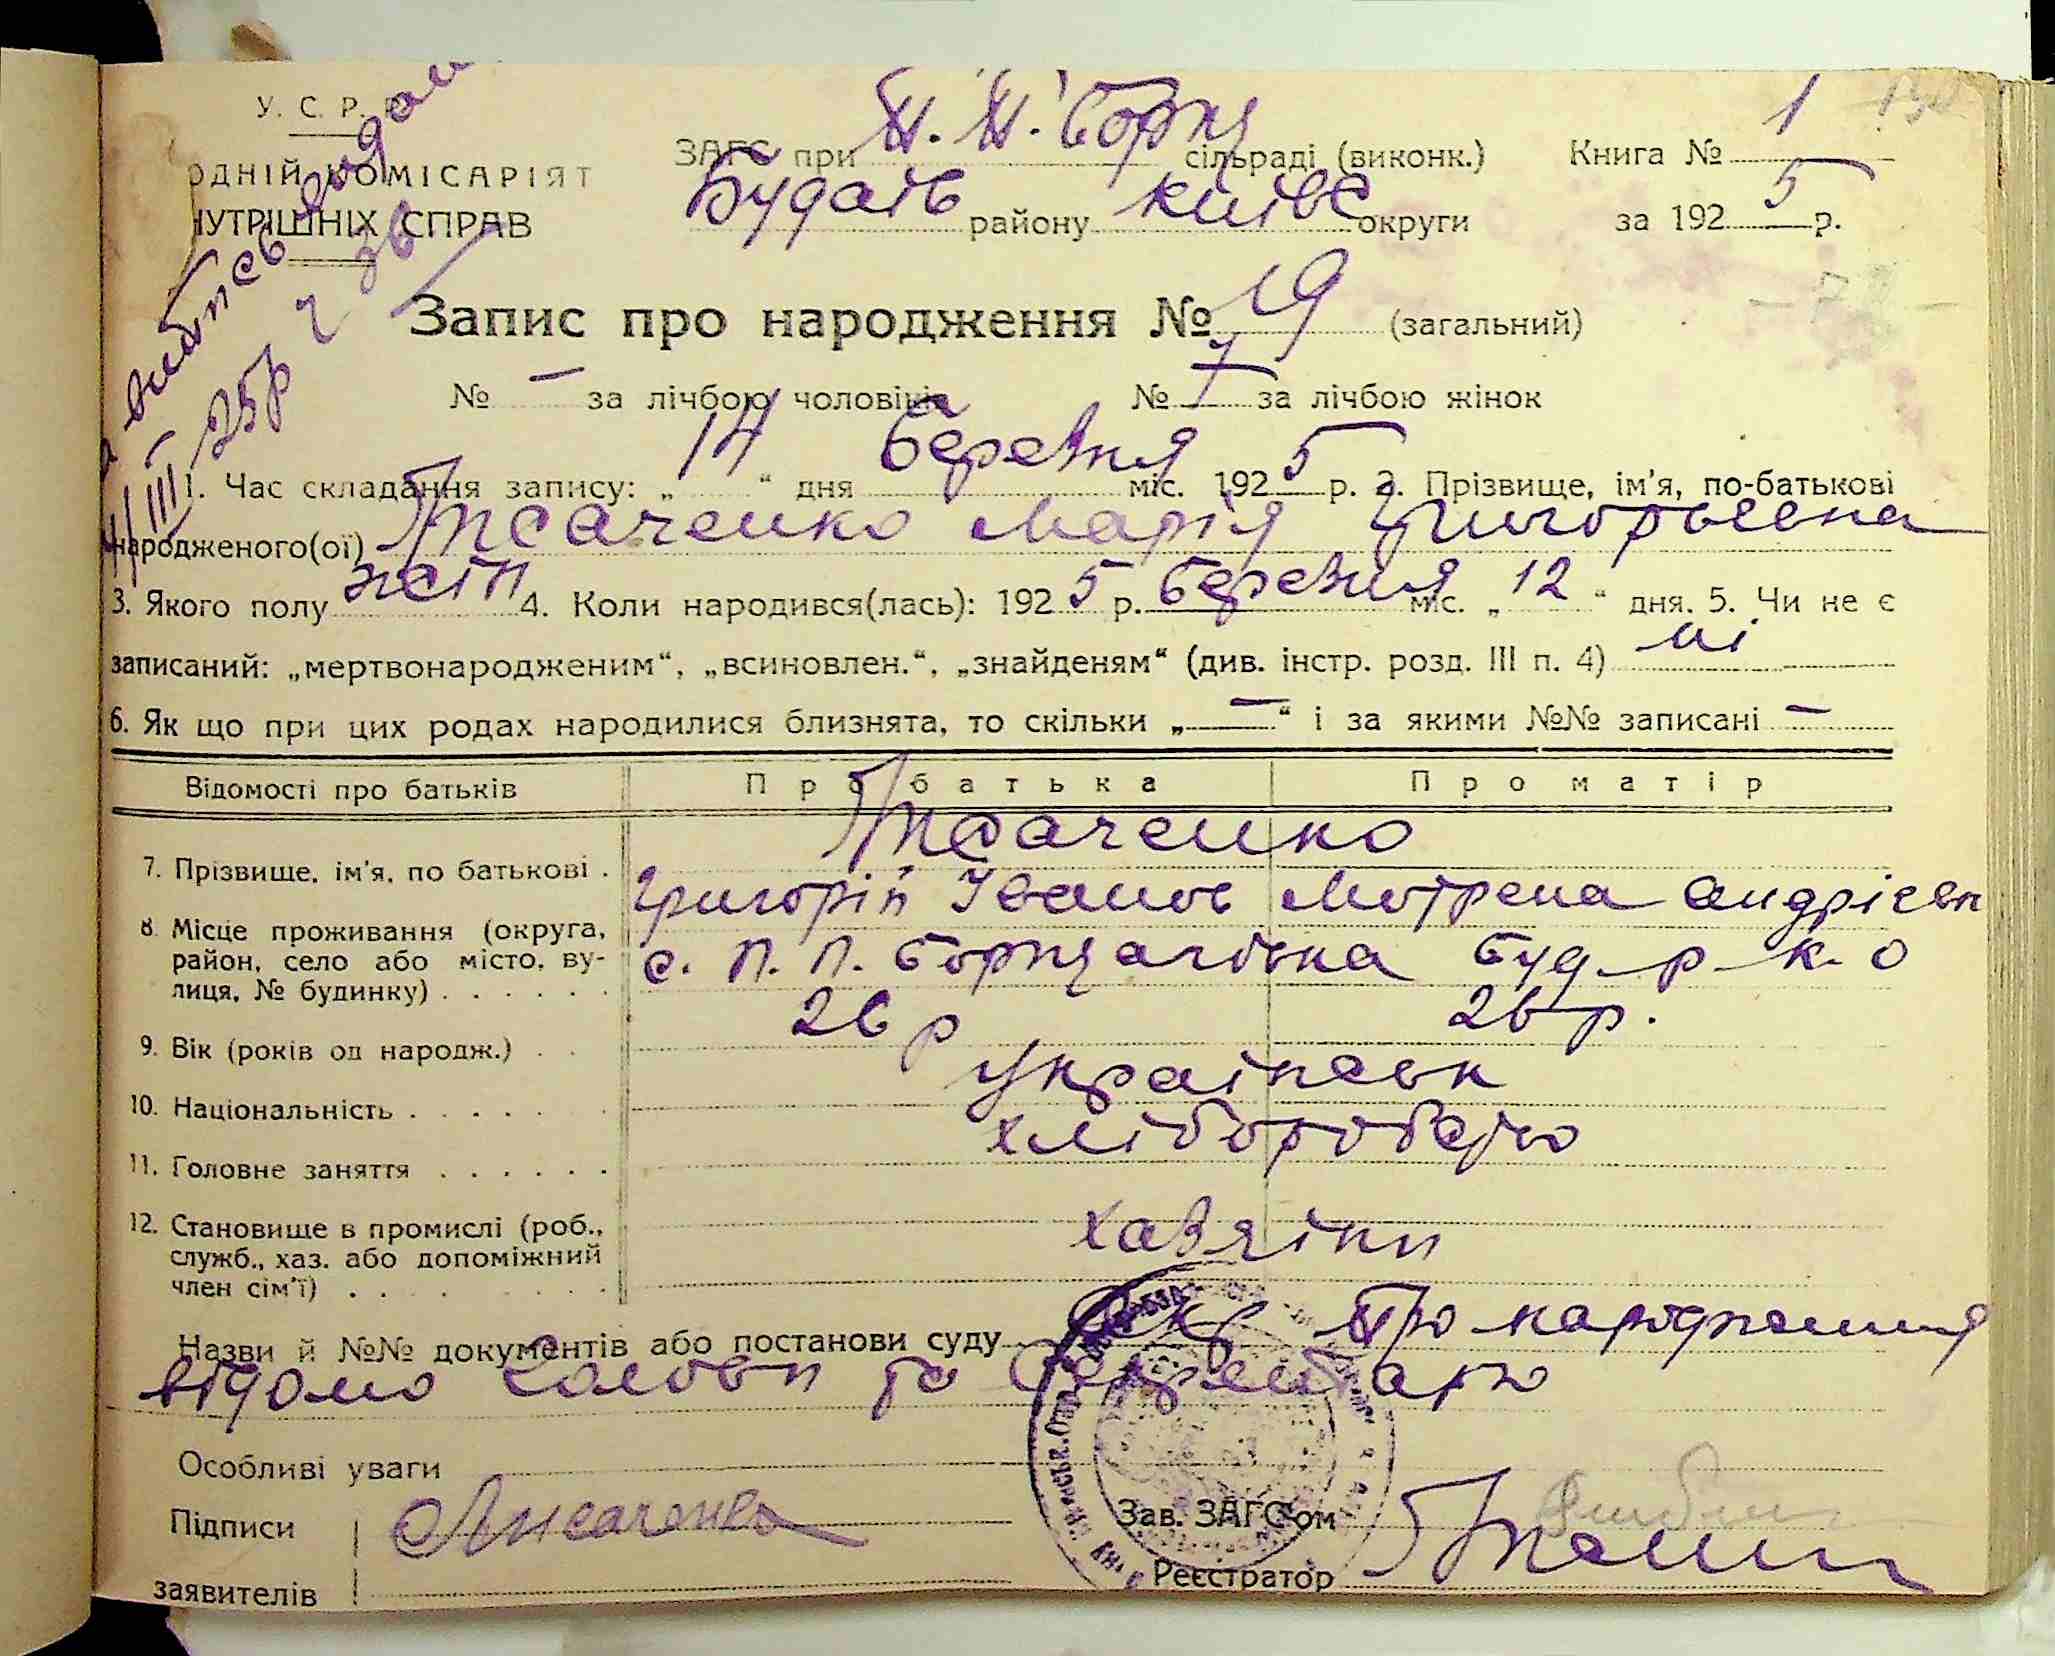 У. С. Р. Р.
ОДНІЙ КОМІСАРІЯТ
НУТРІШНІХ СПРАВ
ЗАГС при П. П. Борщ сільраді (виконк.) Книга № 1
Будаїв району Київс округи за 1925 р.
Запис про народження № 19 (загальний)
№ — за лічбою чоловіків № 7 за лічбою жінок
1. Час складання запису: „14“ дня березня міс. 1925 р. 2. Прізвище, ім'я, по-батькові
народженого(ої) Ткаченко Марія Григорьевна
3. Якого полу жін 4. Коли народився(лась): 1925 р. березня міс. „12“ дня. 5. Чи не є
записаний: „мертвонародженим“, „всиновлен.“, „знайденям“ (див. інстр. розд. III п. 4) ні
6. Як що при цих родах народилися близнята, то скільки „—“ і за якими №№ записані —
Відомості про батьків Про батька Про матір
Ткаченко
7. Прізвище, ім'я, по батькові . Григорій Іванов Мотрена Андрієвн
8. Місце проживання (округа, район, село або місто, вулиця, № будинку) . . . . . . с. П. П. Борщагівка Буд-р-к-о
9. Вік (років од народж.) . . 26 р 26 р.
10. Національність . . . . . українськ
11. Головне заняття . . . . . . хліборобство
12. Становище в промислі (роб., служб., хаз. або допоміжний член сім'ї) . . . . . . хазяїни
Назви й №№ документів або постанови суду про народження
відомо голови та секретарю
Особливі уваги
Підписи
Зав. ЗАГС'ом
заявителів
Реєстратор